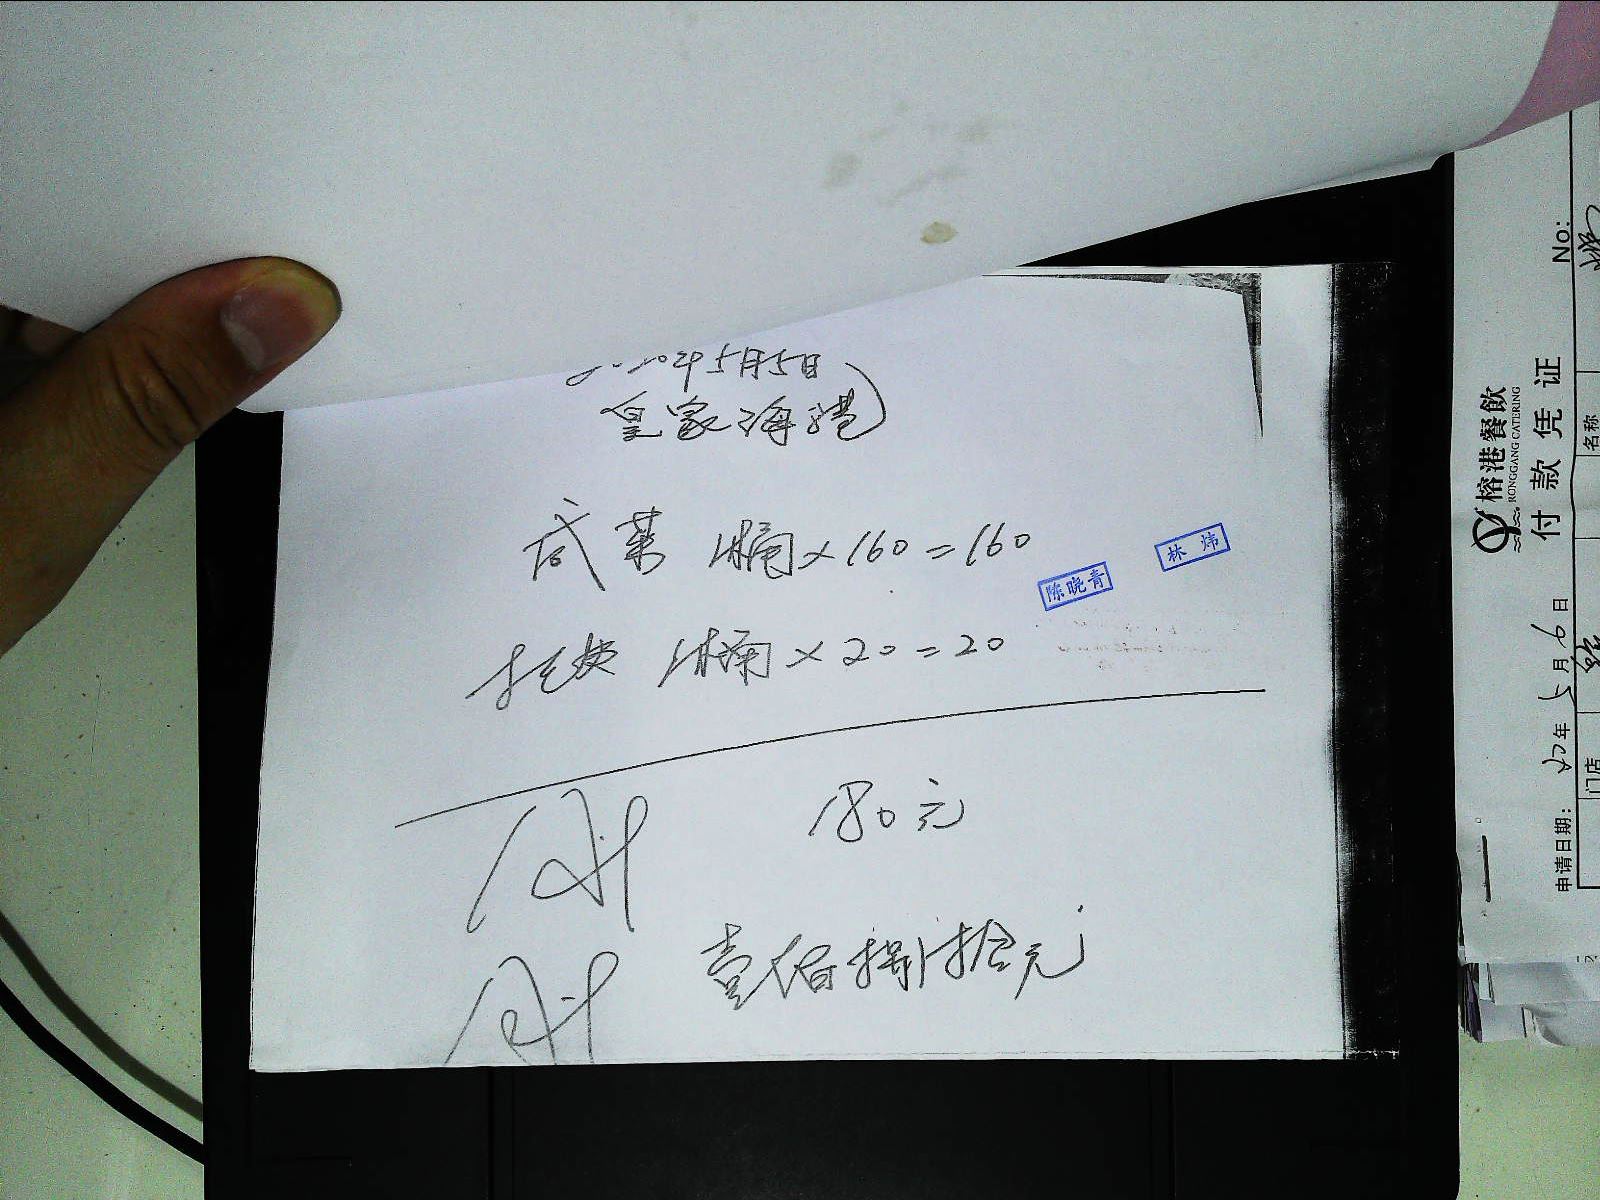 2020年5月5日
皇家海港
咸菜 1桶×160=160
1桶×20=20
180元
壹佰捌拾元
陈晓青
林炜
榕港餐飲
RONGGANG CATERING
付款凭证
No:
申请日期: 年5月9日
门店
名称